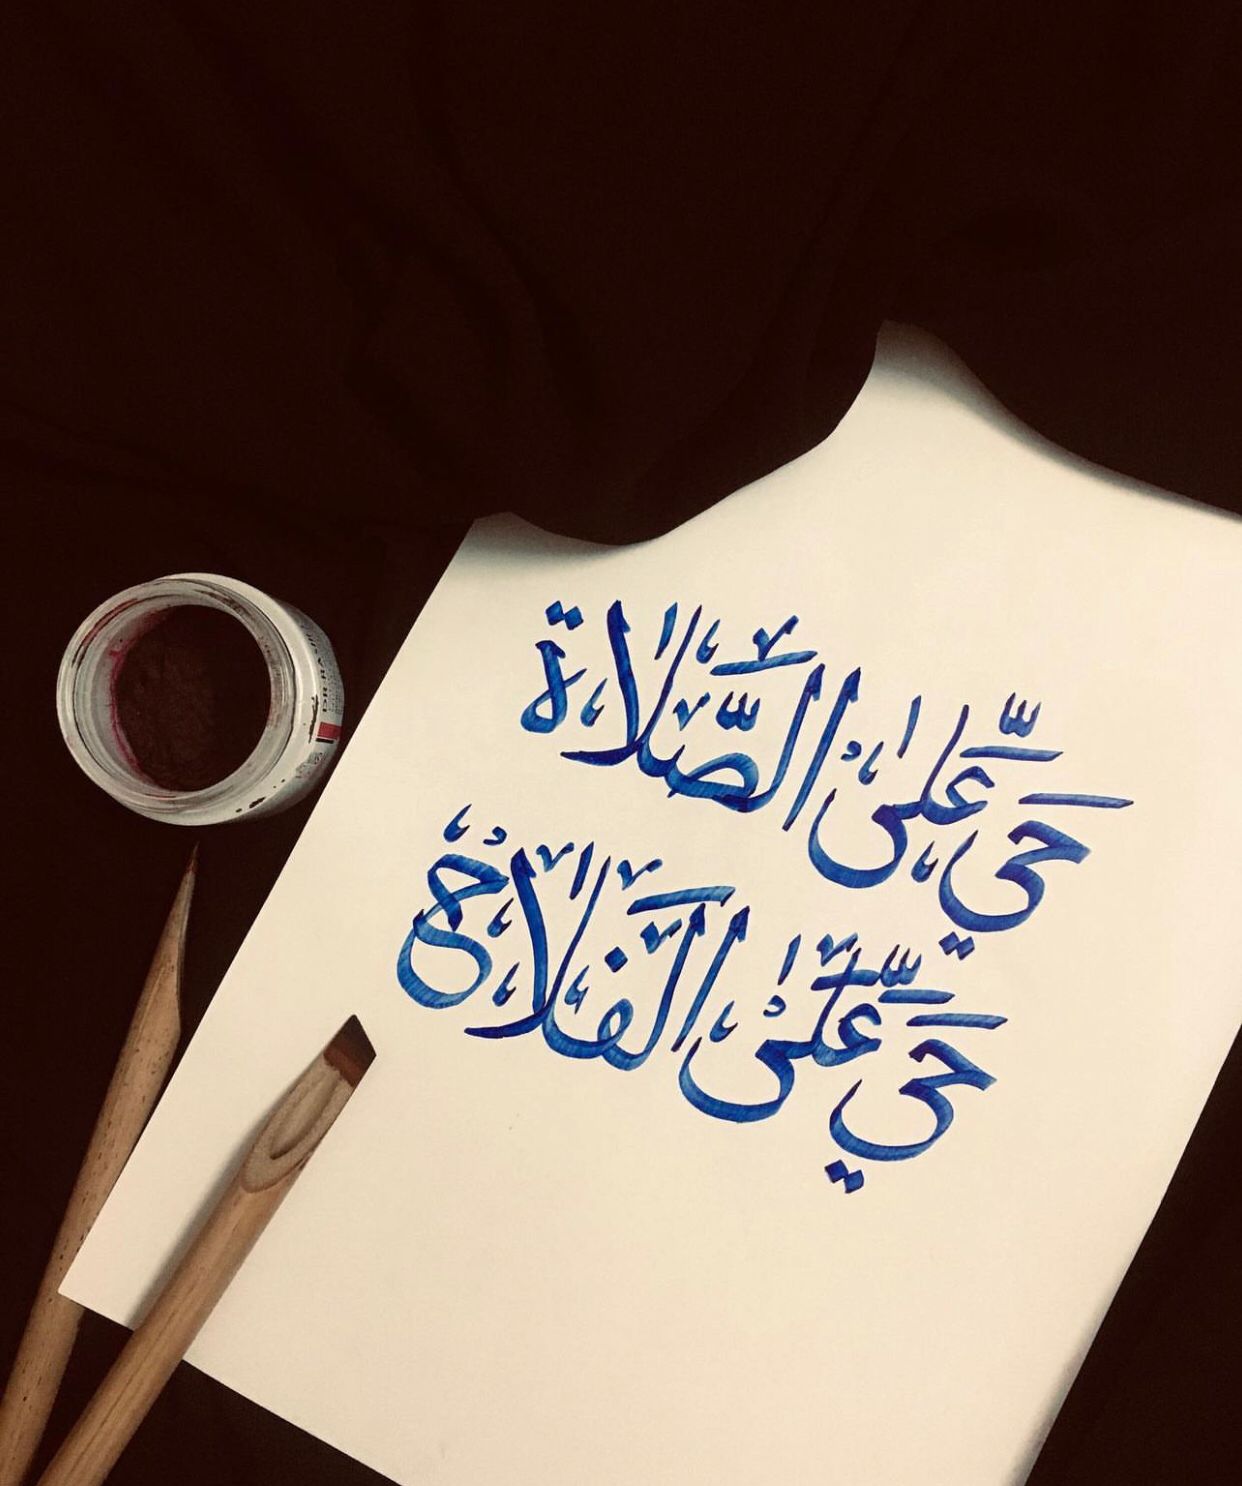 حَيَّ عَلىٰ الصَّلَاة
حَيَّ عَلَىٰ الفَلَاح